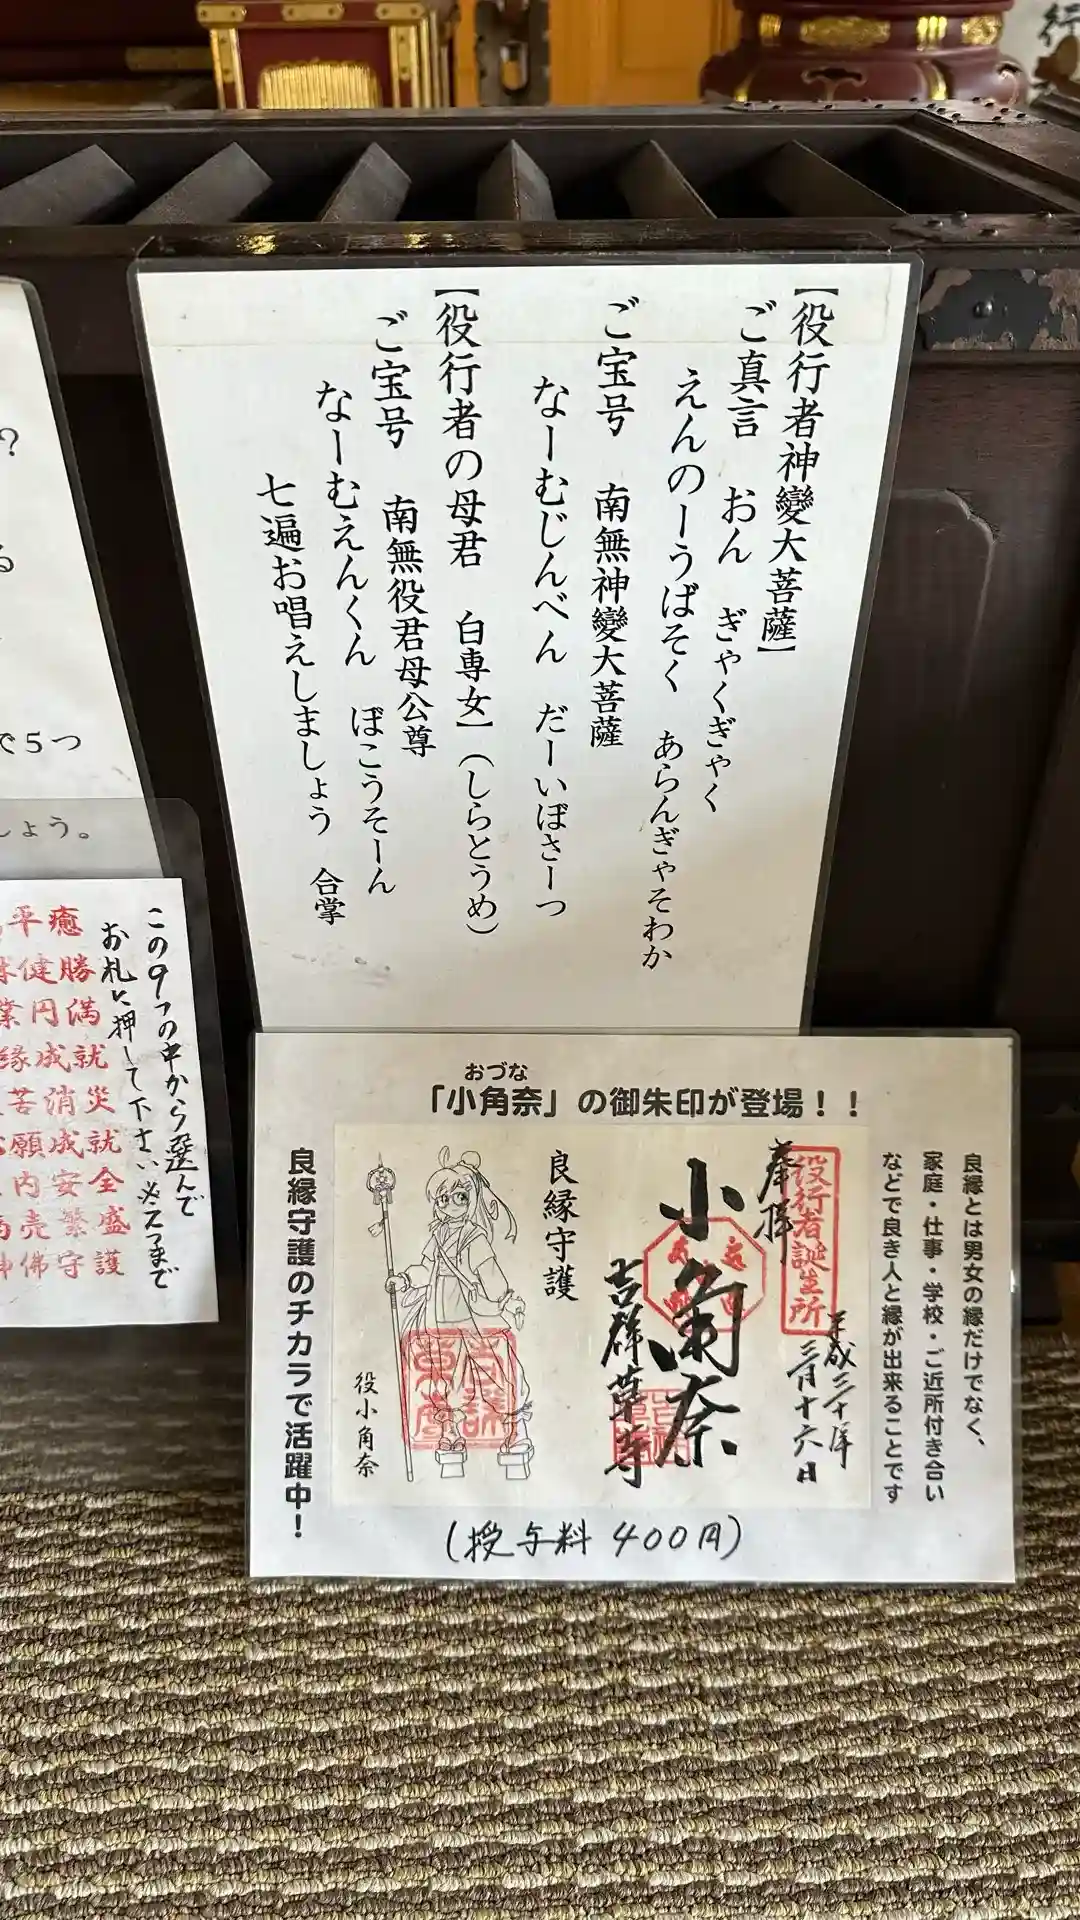 【役行者神變大菩薩】
ご真言 おん ぎゃくぎゃく
えんのーうばそく あらんぎゃそわか
ご宝号 南無神變大菩薩
なーむじんべん だーいぼさーつ
【役行者の母君 白専女】(しらとうめ)
ご宝号 南無役君母公尊
なーむえんくん ぼこうそーん
七遍お唱えしましょう 合掌
おづな
「小角奈」の御朱印が登場!!
良縁とは男女の縁だけでなく、
家庭・仕事・学校・ご近所付き合い
などで良き人と縁が出来ることです
役行者誕生所
奉拝
平成三十年
三月十六日
小角奈
吉祥草寺
良縁守護
役小角奈
良縁守護のチカラで活躍中!
(授与料 400円)
?
る
で5つ
しょう。
この9つの中から選んで
お札に押して下さい※2つまで
平癒
健勝
業円満
縁成就
苦消災
願成就
内安全
売繁盛
神佛守護
行